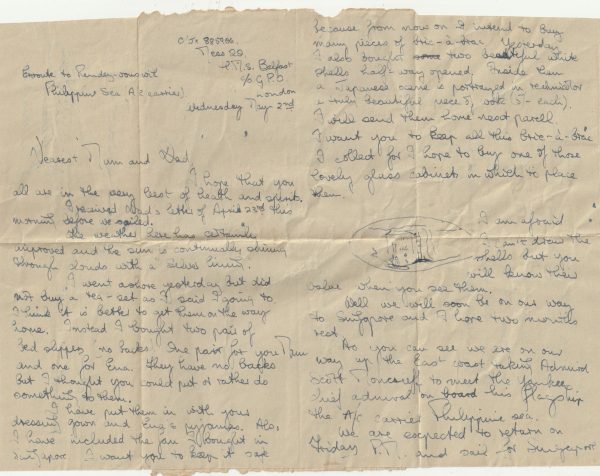 C/Jx 885966
Mess 22
H.M.S. Belfast
c/o G.P.O
London
Wednesday May 2nd
Enroute to Rendez-vous with
Philippine Sea (A/c carrier)
Dearest Mum and Dad,
I hope that you
all are in the very best of health and spirits.
I received Dad's letter of April 23rd this
morning before we sailed.
The weather here has certainly
improved and the sun is continually shining
through clouds with a silver lining.
I went ashore yesterday but did
not buy a tea-set as I said I going to
I think it is better to get them on the way
home. Instead I bought two pair of
bed slippers (no backs) One pair for you Mum
and one for Ena. They have no backs
but I thought you could put or rather do
something to them.
I have put them in with your
dressing gown and Ena's pyjamas. Also,
I have included the fan I bought in
Singapore. I want you to keep it safe
because from now on I intend to buy
many pieces of bric-à-brac. Yesterday
I also bought two beautiful white
shells half-way opened. Inside them
a Japanese scene is portrayed in technicolor
a truly beautiful piece 5, each).
I will send them home next parcel.
I want you to keep all this bric-à-brac
I collect for I hope to buy one of those
lovely glass cabinets in which to place
them.
I am afraid
I can't draw the
shells but you
will know their
value when you see them.
Well we will soon be on our way
to Singapore and I have two months
rest.
As you can see we are on our
way up the East coast taking Admiral
Scott Moncrieff to meet the Yankee
chief admiral on board his flagship
the A/c carrier Philippine sea.
We are expected to return on
Friday P.M. and said for Singapore